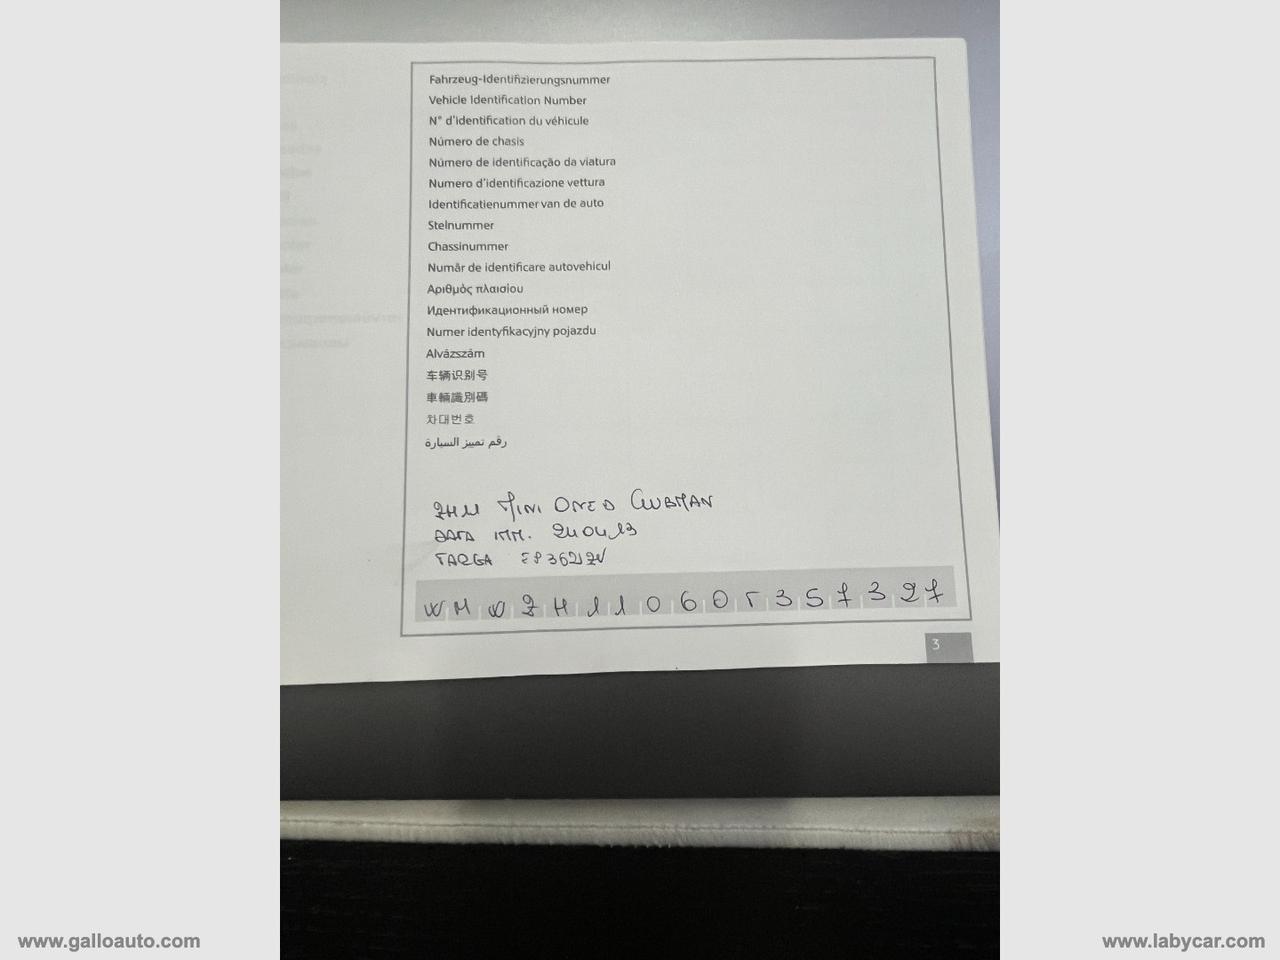 Fahrzeug-Identifizierungsnummer
Vehicle Identification Number
N° d'identification du véhicule
Número de chasis
Número de identificação da viatura
Numero d'identificazione vettura
Identificatienummer van de auto
Stelnummer
Chassinummer
Număr de identificare autovehicul
Αριθμός πλαισίου
Идентификационный номер
Numer identyfikacyjny pojazdu
Alvázszám
车辆识别号
車輛識別碼
차대번호
رقم تمييز السيارة
MINI ONE D CLUBMAN
DATA IMM. 24 04 13
TARGA
WMWZH11060T357327
3
www.galloauto.com
www.labycar.com